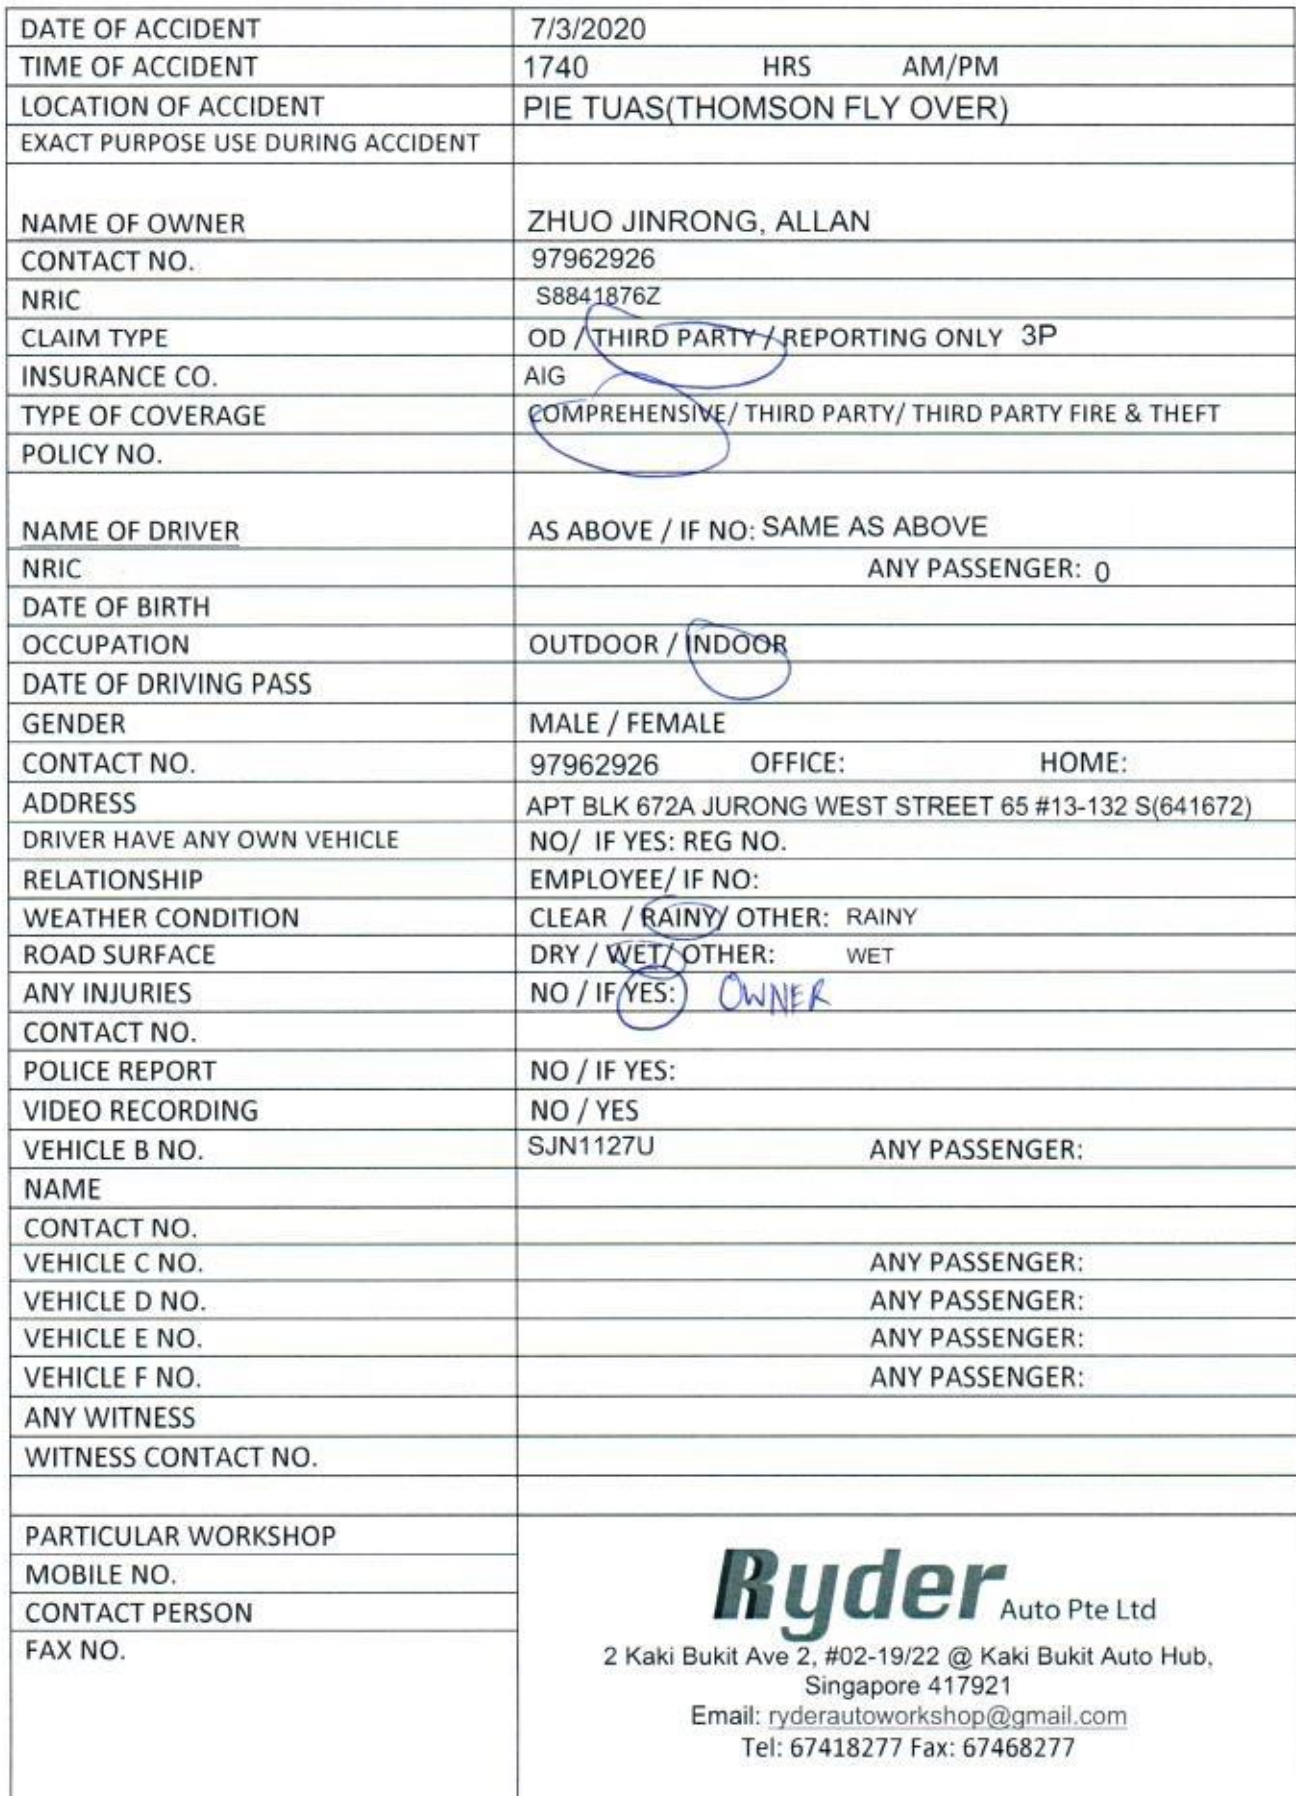 DATE OF ACCIDENT 7/3/2020
TIME OF ACCIDENT 1740 HRS AM/PM
LOCATION OF ACCIDENT PIE TUAS(THOMSON FLY OVER)
EXACT PURPOSE USE DURING ACCIDENT
NAME OF OWNER ZHUO JINRONG, ALLAN
CONTACT NO. 97962926
NRIC S8841876Z
CLAIM TYPE OD / THIRD PARTY / REPORTING ONLY 3P
INSURANCE CO. AIG
TYPE OF COVERAGE COMPREHENSIVE/ THIRD PARTY/ THIRD PARTY FIRE & THEFT
POLICY NO.
NAME OF DRIVER AS ABOVE / IF NO: SAME AS ABOVE
NRIC ANY PASSENGER: 0
DATE OF BIRTH
OCCUPATION OUTDOOR / INDOOR
DATE OF DRIVING PASS
GENDER MALE / FEMALE
CONTACT NO. 97962926 OFFICE: HOME:
ADDRESS APT BLK 672A JURONG WEST STREET 65 #13-132 S(641672)
DRIVER HAVE ANY OWN VEHICLE NO/ IF YES: REG NO.
RELATIONSHIP EMPLOYEE/ IF NO:
WEATHER CONDITION CLEAR / RAINY/ OTHER: RAINY
ROAD SURFACE DRY / WET/ OTHER: WET
ANY INJURIES NO / IF YES: OWNER
CONTACT NO.
POLICE REPORT NO / IF YES:
VIDEO RECORDING NO / YES
VEHICLE B NO. SJN1127U ANY PASSENGER:
NAME
CONTACT NO.
VEHICLE C NO. ANY PASSENGER:
VEHICLE D NO. ANY PASSENGER:
VEHICLE E NO. ANY PASSENGER:
VEHICLE F NO. ANY PASSENGER:
ANY WITNESS
WITNESS CONTACT NO.
PARTICULAR WORKSHOP
MOBILE NO.
CONTACT PERSON
FAX NO.
Ryder Auto Pte Ltd
2 Kaki Bukit Ave 2, #02-19/22 @ Kaki Bukit Auto Hub,
Singapore 417921
Email: ryderautoworkshop@gmail.com
Tel: 67418277 Fax: 67468277